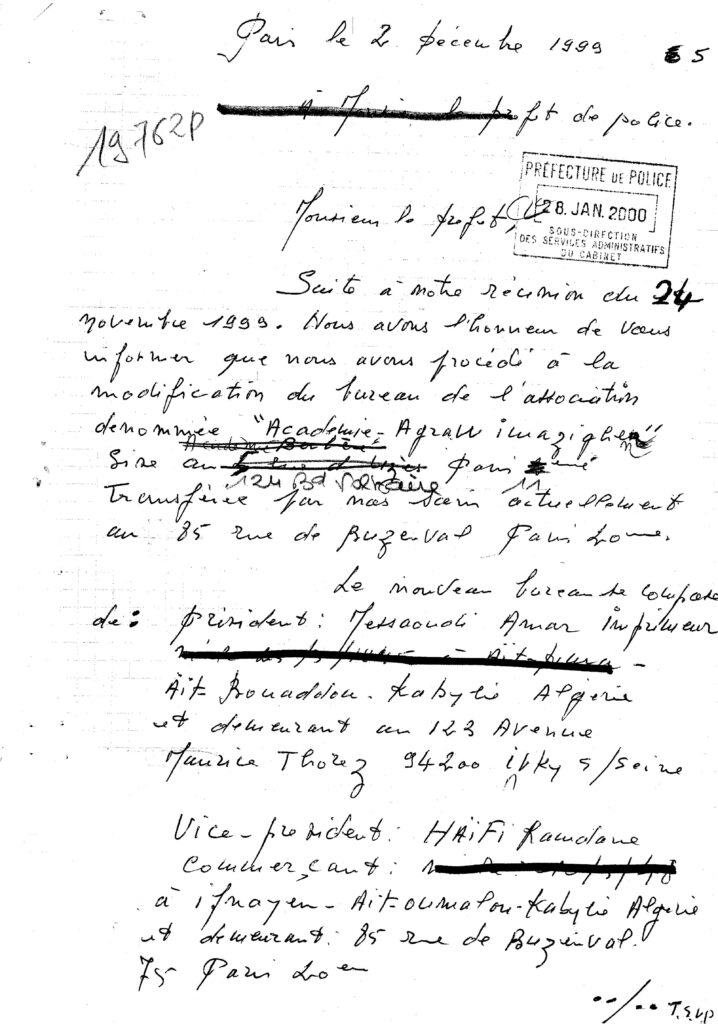 Paris le 2 Décembre 1999
5
19762P
À le préfet de police.
PRÉFECTURE DE POLICE
28. JAN. 2000
SOUS-DIRECTION
DES SERVICES ADMINISTRATIFS
DU CABINET
Monsieur le préfet,
Suite à notre réunion du 24
novembre 1999. Nous avons l'honneur de vous
informer que nous avons procédé à la
modification du bureau de l'association
denommée "Académie - Agraw imazighen"
Académie Berbère
Sise au Paris
124 Bd Voltaire 11
Transférée par nos soin actuellement
au 85 rue de Buzenval Paris 20eme.
Le nouveau bureau se compose
de: président: Messaoudi Amar imprimeur
Ait-Bouaddou. Kabylie Algérie
et demeurant au 123 Avenue
Maurice Thorez 94200 ivry s/seine
Vice-président: HAÏFI Ramdane
Commerçant:
à ifnayen - Ait-oumalou-Kabylie Algérie
et demeurant: 85 rue de Buzenval.
75 Paris 20em
../.. T.S.V.P